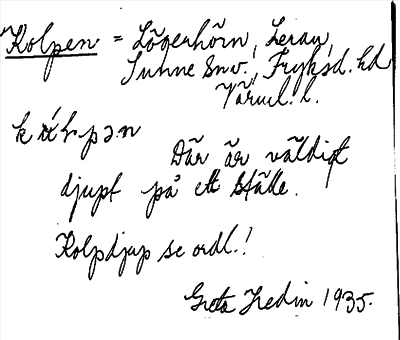 Kolpen = Lögerhörn, Leran,
Sunne snv., Fryksd. hd
Värml. l.
Där är väldigt
djupt på ett ställe.
Kolpdjup se ordl.!
Greta Hedin 1935.